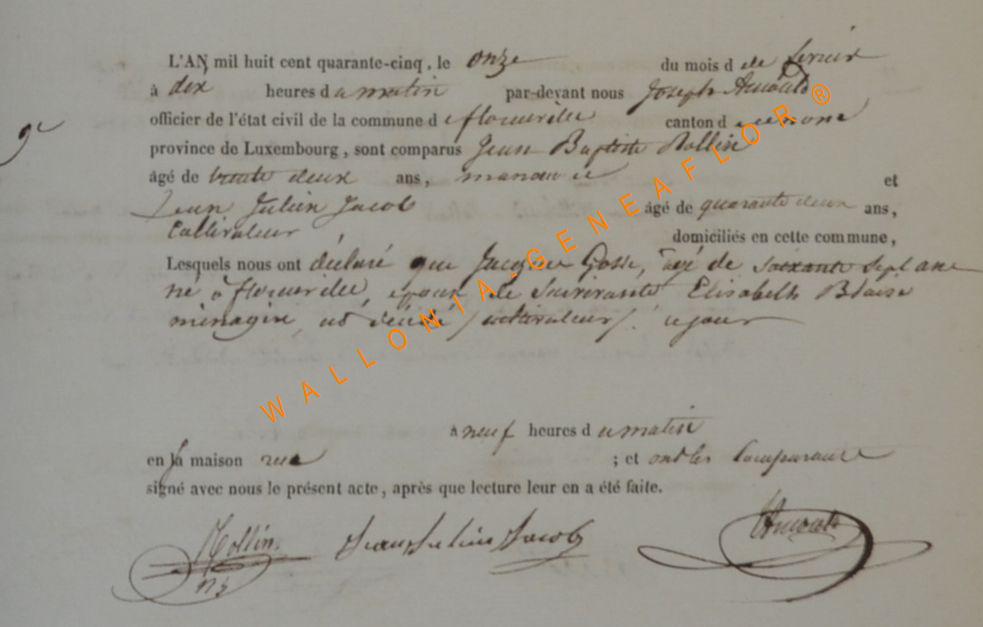 L'AN mil huit cent quarante-cinq, le onze du mois d de fevrier
9e
à dix heures d u matin par-devant nous Joseph Arnould
officier de l'état civil de la commune d e florenville canton d
province de Luxembourg, sont comparus Jean Baptiste Rollin
âgé de trente deux ans, et
Jean Julien Jacob âgé de quarante deux ans,
Cultivateur domiciliés en cette commune,
Lesquels nous ont déclaré que Jacque Gosse, agé de soixante sept ans
né à florenville, epoux de survivante Elisabeth Blaise
ménagere, est decedé / cultivateur /. cejour
à neuf heures d u matin
en sa maison rue ; et ont les comparants
signé avec nous le présent acte, après que lecture leur en a été faite.
Rollin. Jean Julien Jacob Arnould
WALLONIA-GENEAFLOR®